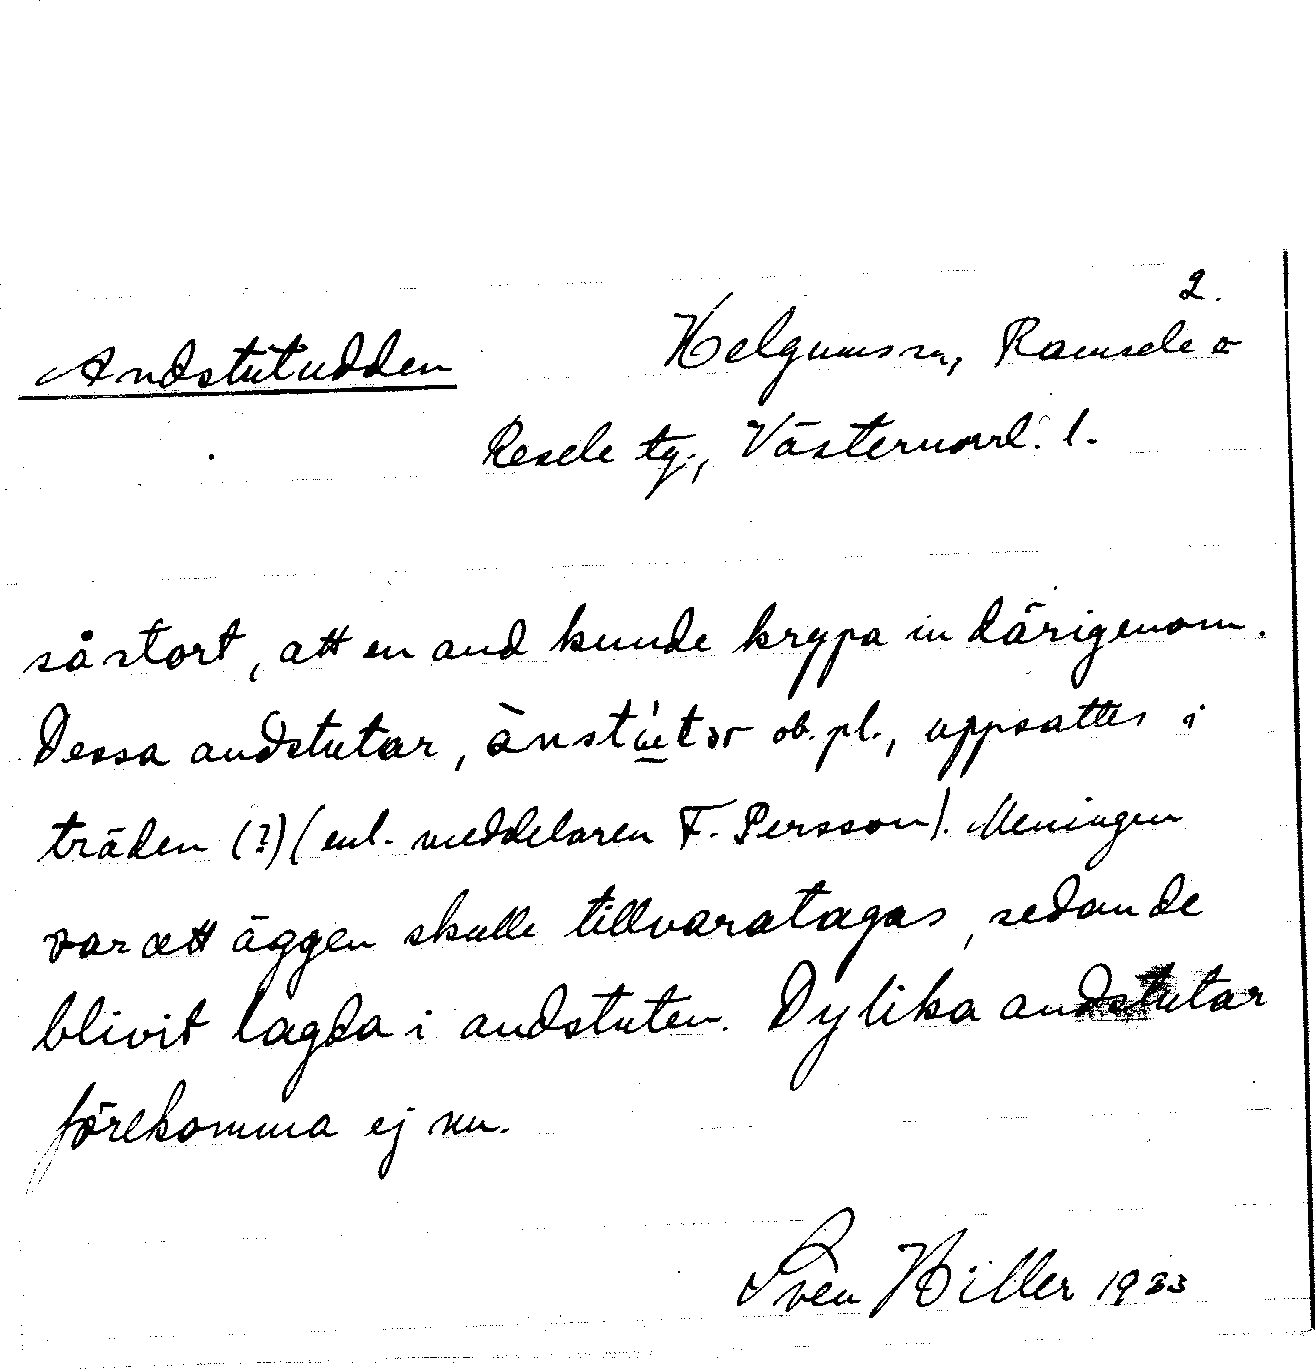 2.
Andstutudden Helgums sn, Ramsele o
Resele tg., Västernorrl. l.
så stort, att en and kunde krypa in därigenom.
Dessa andstutar, ob. pl., uppsattes i
träden (?) (enl. meddelaren F. Persson). Meningen
var att äggen skulle tillvaratagas, sedan de
blivit lagda i andstuten. Dylika andstutar
förekomma ej nu.
Sven Hiller 1933